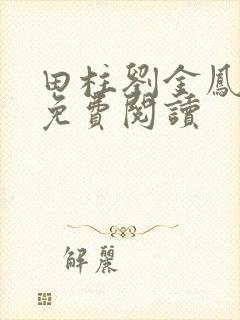 田柱劉金鳳
免費閱讀
解麗